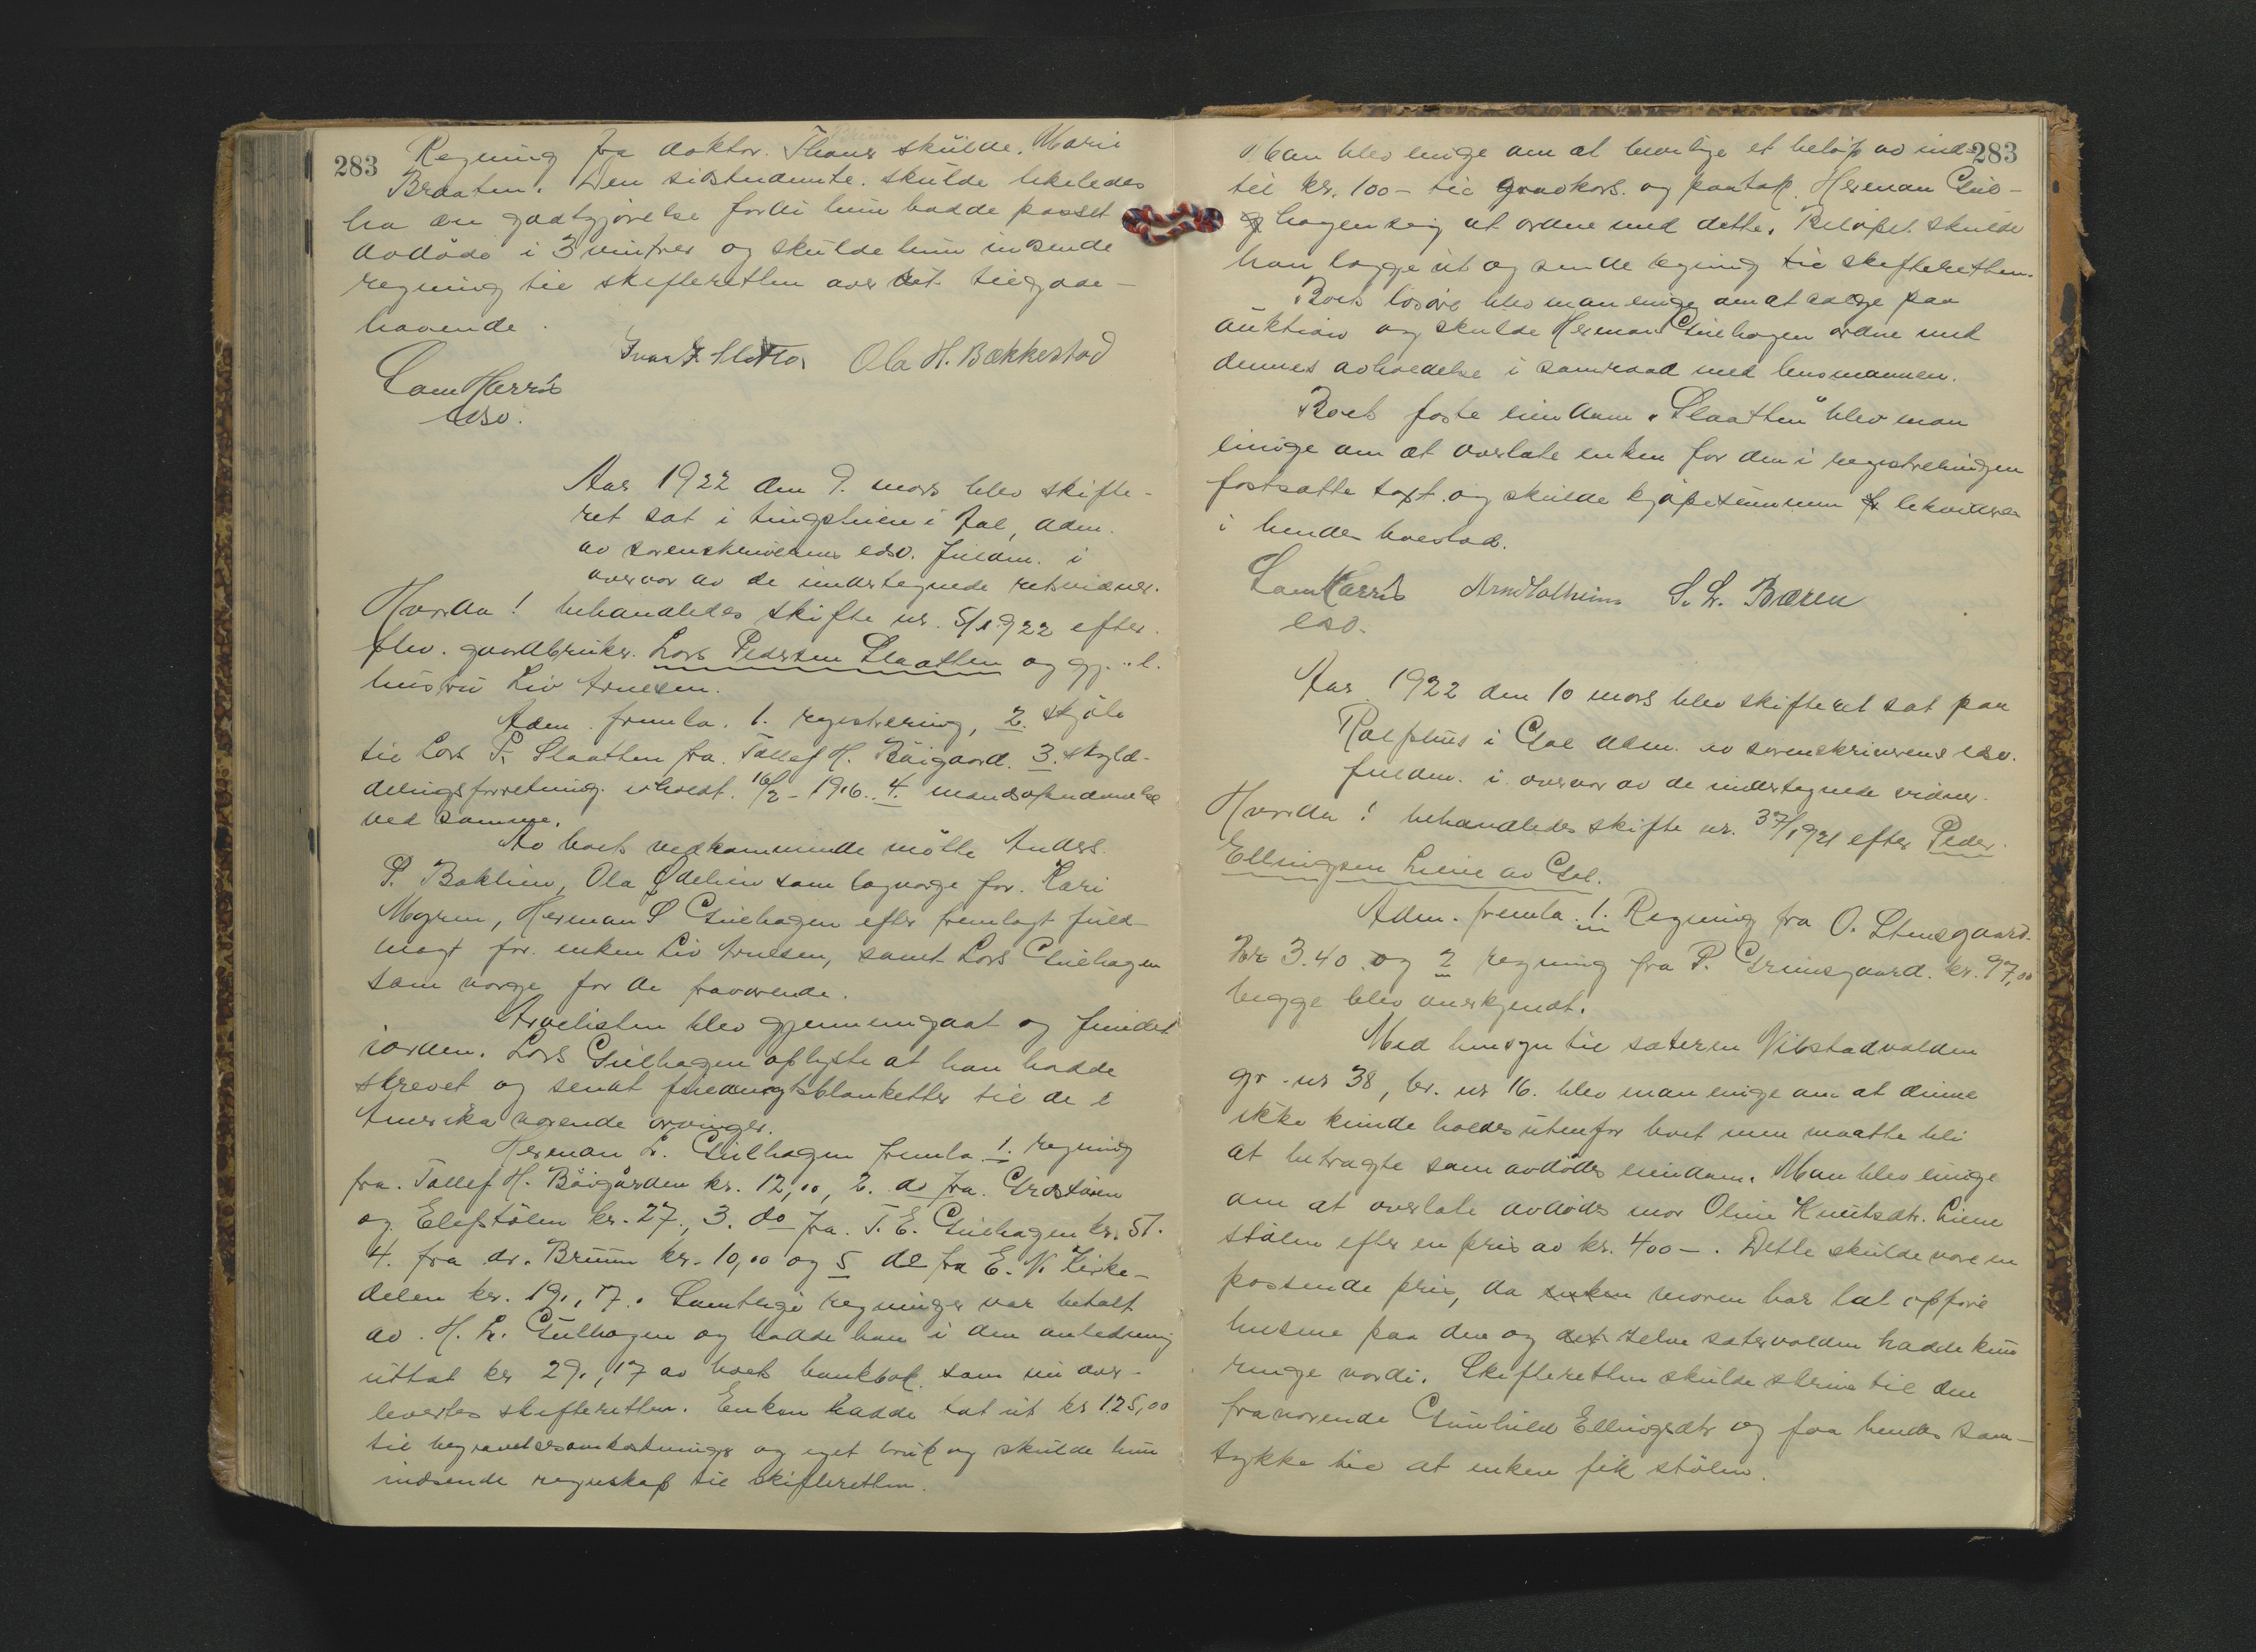 283
Regning fra doktor Thaus skulde Marii
Braaten. Den sistnevnte skulde likeledes
ha en godtgjørelse fordi hun hadde passet
avdøde i 3 vintrer og skulde hun insende
regning til skifteretten over det tilgode-
havende.
Ola H. Bækkestad
Sam Harris
edsv.
Aar 1922 den 9. mars blev skifte-
ret sat i tingstuen i Aal, adm.
av sorenskriverens edsv. fuldm. i
overvær av de undertegnede retsvidner.
Hvorda! behandledes skifte nr. 5/1922 efter
fhv. gaardbruker Lars Pedersen Slaatten og gj.l.
hustru Liv Arnesen.
Adm. fremla. 1. registrering, 2. skjøte
til Lars P. Slaatten fra Tollef H. Bøigaard. 3. skyld-
delingsforretning avholdt 16/2-1916. 4. mandsopnævnelse
ved samme.
Av boets vedkommende møtte Anders
P. Baklien, Ola Ødelien som lagverge for Kari
Myren, Herman L Gulhagen efter fremlagt fuld-
magt for enken Liv Arnesen, samt Lars Gulhagen
som verge for de fraværende.
Arvelisten blev gjennemgaat og fundet
iorden. Lars Gulhagen oplyste at han hadde
skrevet og sendt fuldmagtsblanketter til de i
Amerika værende arvinger.
Herman L. Gulhagen fremla 1. regning
fra Tollef H. Bøigården kr. 12,00, 2. do fra Grøstølen
og Elefstølen kr. 27., 3. do fra T. E. Gulhagen kr. 51.
4. fra dr. Bruun kr. 10,00 og 5 do fra E. N. Kirke-
delen kr. 19,17. Samtlige regninger var betalt
av H. L. Gulhagen og hadde han i den anledning
uttat kr 29,17 av boets bankbok som nu over-
levertes skifteretten. Enken hadde tat ut kr 125,00
til begravelsesomkostninger og eget bruk og skulde hun
indsende regnskap til skifteretten.
283
Man blev enige om at bevilge et beløp av ind-
til kr. 100- til gravkors og paatok Herman Gul-
hagen sig at ordne med dette. Beløpet skulde
han lægge ut og sende regning til skifteretten.
Boets løsøre blev man enige om at sælge paa
auktion og skulde Herman Gulhagen ordne med
dennes avholdelse i samraad med lensmannen.
Boets faste eiendom "Slaatten" blev man
enige om at overlate enken for den i registreringen
fastsatte takst og skulde kjøpesummen likvideres
i hendes boeslod.
Sam Harris S. L. Bæren
edsv.
Aar 1922 den 10 mars blev skifteret sat paa
Rolfshus i Gol adm. av sorenskriverens edsv.
fuldm. i overvær av de undertegnede vidner.
Hvorda! behandledes skifte nr. 37/1921 efter Peder
Ellingsen Liene av Gol.
Adm. fremla 1. Regning fra O. Stensgaard
Kr 3.40 og 2 regning fra P. Grimsgaard kr. 97,00
begge blev anerkjendt.
Med hensyn til sæteren Vibstadvolden
gr. nr 38, br. nr 16. blev man enige om at denne
ikke kunde holdes utenfor boet men maatte bli
at betragte som avdødes eiendom. Man blev enige
om at overlate avdødes mor Oline Knutsdtr. Liene
stølen efter en pris av kr. 400-. Dette skulde være en
passende pris, da enken moren har lat opføre
husene paa den og det selve sætervolden hadde kun
ringe værdi. Skifteretten skulde skrive til den
fraværende Gunhild Ellingsdtr og faa hendes sam-
tykke til at enken fik stølen.